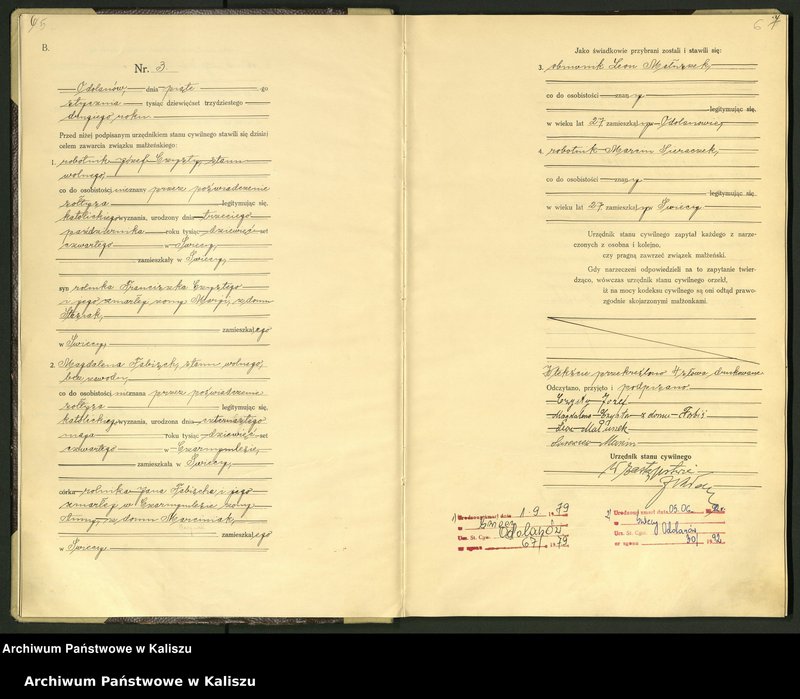 65
B.
Nr. 3
Odolanów, dnia piąte go
stycznia tysiąc dziewięćset trzydziestego
drugiego roku
Przed niżej podpisanym urzędnikiem stanu cywilnego stawili się dzisiaj
celem zawarcia związku małżeńskiego:
1. robotnik Józef Czysty, stanu
wolnego,
co do osobistości nieznany przez poświadczenie
sołtysa legitymując się,
katolickiego wyznania, urodzony dnia trzeciego
października roku tysiąc dziewięćset
czwartego w Świecy,
zamieszkały w Świecy,
syn rolnika Franciszka Czystego
i jego zmarłej żony Marji, z domu
zamieszkałego
w Świecy,
2. Magdalena Fabiszek, stanu wolnego,
bez zawodu,
co do osobistości nieznana przez poświadczenie
sołtysa legitymując się,
katolickiego wyznania, urodzona dnia czternastego
maja roku tysiąc dziewięćset
czwartego w Czarnymlesie,
zamieszkała w Świecy,
córka rolnika Jana Fabiszka i jego
zmarłej w Czarnymlesie żony
Anny, z domu Marciniak,
zamieszkałego
w Świecy
6 7
Jako świadkowie przybrani zostali i stawili się:
3. Leon Matuszek,
co do osobistości znany
legitymując się.
w wieku lat 27 zamieszkały w Odolanowie,
4. robotnik Marcin Sieraczek,
co do osobistości znany
legitymując się.
w wieku lat 27 zamieszkały w Świecy
Urzędnik stanu cywilnego zapytał każdego z narze-
czonych z osobna i kolejno,
czy pragną zawrzeć związek małżeński.
Gdy narzeczeni odpowiedzieli na to zapytanie twier-
dząco, wówczas urzędnik stanu cywilnego orzekł,
iż na mocy kodeksu cywilnego są oni odtąd prawo-
zgodnie skojarzonymi małżonkami.
W tekście przekreślono 4 słowa drukowane
Odczytano, przyjęto i podpisano
Czysty Józef
Magdalena Czysta z domu
Leon
Marcin
Urzędnik stanu cywilnego
W zastępstwie
1) zmarł dnia 1.9 1979
w
Urz. St. Cyw. Odolanów
nr zgonu 67/1979
2) zmarł dnia 05.06.
w Świecy
Urz. St. Cywil. Odolanów
nr zgonu 30/1992
Archiwum Państwowe w Kaliszu
Archiwum Państwowe w Kaliszu